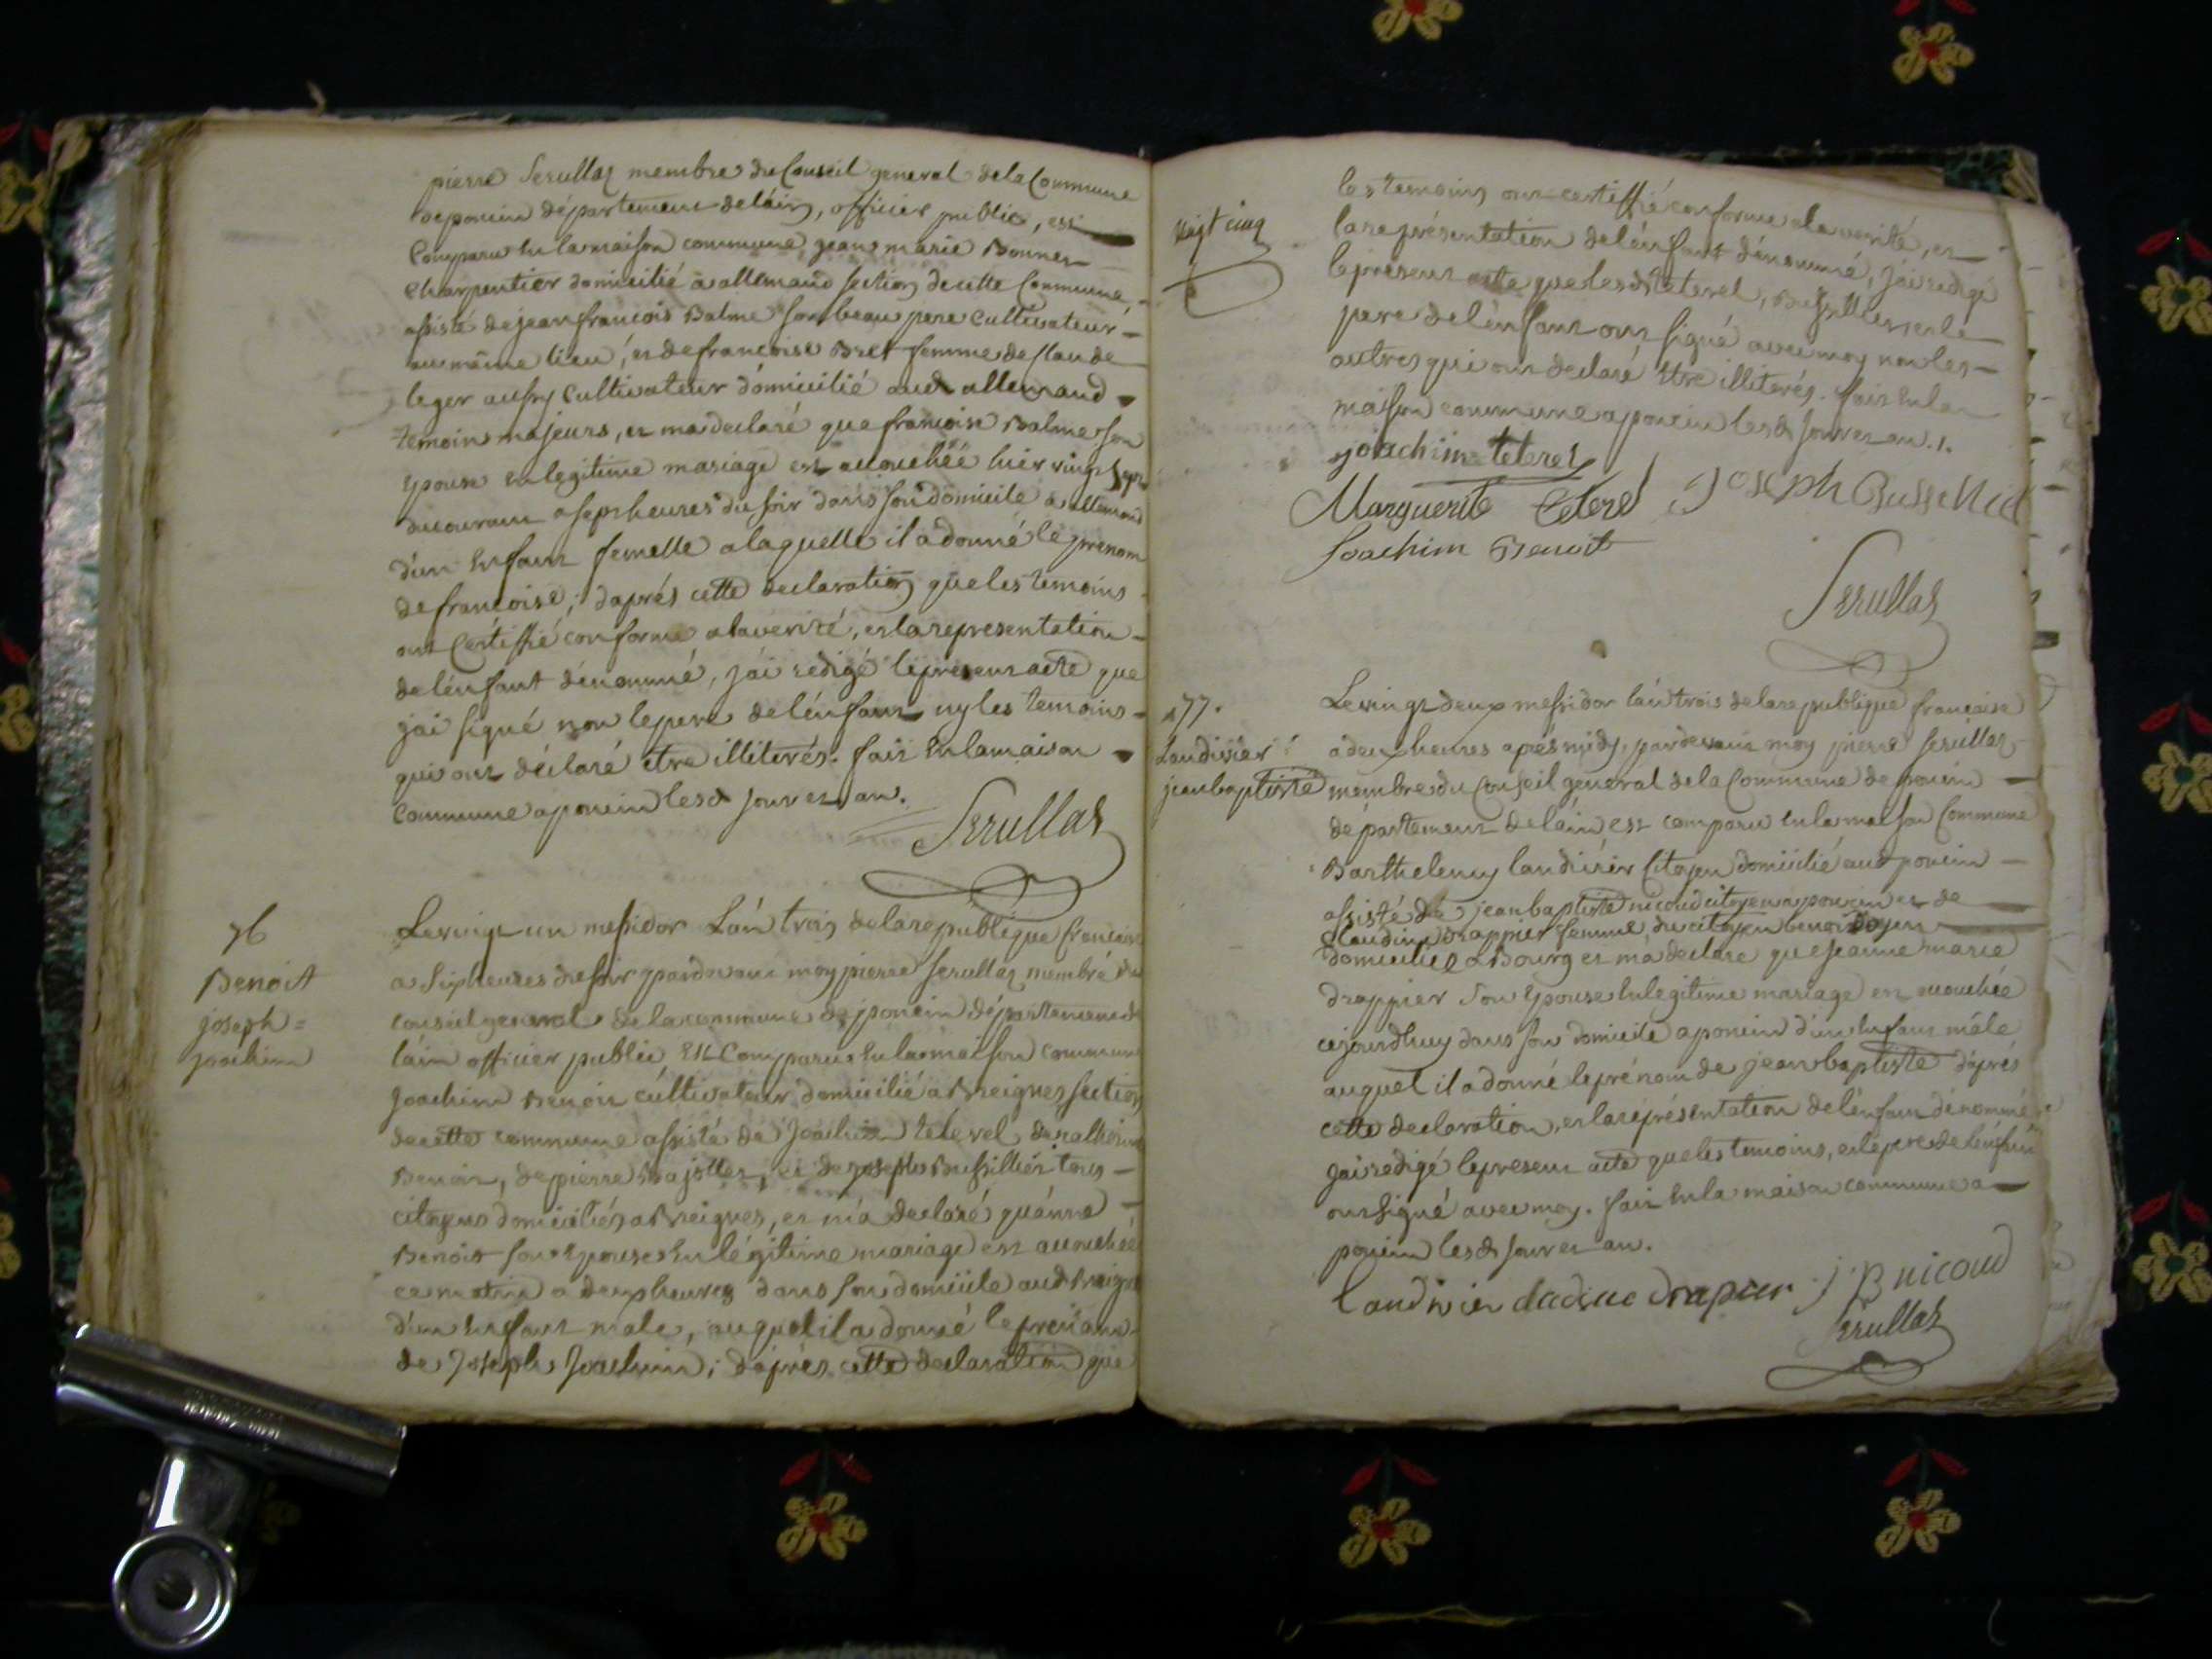 pierre Serullaz membre du Conseil general de la Commune
de poncin département de láin, officier public, est
Comparu En la maison commune jean marie Bonnet
Charpentier domicilié a allemand section de cette Commune
assisté de jean francois Balme son beau pere Cultivateur
au même lieu, et de francoise Bret femme de Claude
leger aussy Cultivateur domicilié aud allemand
temoins majeurs, et ma declaré que francoise Balme son
Epouse En legitime mariage est accouchée hier vingt Sept
du courant a sept heures du soir dans son domicile a allemand
d'un Enfant femelle a laquelle il a donné le prenom
de francoise; d'aprés cette declaration que les temoins
ont Certiffié conforme a la verité, et la representation
de lénfant dénommé, j'ái redigé le present acte que
jai signé non le pere de lénfant ny les temoins
qui ont déclaré étre illiterés. fait En la maison
Commune a poncin lesd jour et an.
Serullaz
76
Benoit
joseph =
joachim
Le vingt un messidor Lán trois de la republique francaise
a Six heures du soir pardevant moy pierre Serullaz membre du
conseil general de la commune de poncin département de
láin officier public Est Comparu En la maison commune
Joachim Benoit cultivateur domicilié a Breignes section
de cette commune assisté de Joachim teterel de
Benoit, de pierre et de joseph Bussillier tous
citoyens domiciliés a Breignes, et m'a declaré quánne
Benoit son Epouse En légitime mariage est accouchée
ce matin a deux heures dans son domicile aud Breignes
d'un Enfant male, auquel il a donné le prenom
de Joseph Joachim; d'aprés cette declaration que
vingt cinq
les temoins ont certiffié conforme a la verité, et
la représentation de lénfant dénommé, j'ai redigé
le present acte que lesd teterel, Bussillier et le
pere de lénfant ont signé avec moy non les
autres qui ont declaré Etre illiterés. fait En la
maison commune a poncin lesd jour et an.
joachim teterel
Marguerite teterel Joseph Bussellier
Joachim Benoit
Serullaz
77.
Landivier
jean baptiste
Le vingt deux messidor lán trois de la republique francaise
a deux heures aprés midy, pardevant moy pierre Serullaz
membre du Conseil general de la Commune de poncin
département de láin est comparu En la maison Commune
Barthelemy landivier Citoyen domicilié aud poncin
assisté de jean baptiste nicoud citoyen a poncin et de
Claudine Drappier femme du citoyen benoit doyen
domiciliée a Bourg et ma declaré que jeanne marie
drappier Son Epouse En legitime mariage est accouchée
cejourdhuy dans son domicile a poncin d'un Enfant mâle
auquel il a donné le prénom de jean baptiste d'aprés
cette declaration, et la représentation de lénfant dénommé
jai redigé le present acte que les temoins, et le pere de lénfant
ont signé avec moy. fait En la maison commune a
poncin lesd jour et an.
landivier claudine Drapier J B nicoud
Serullaz